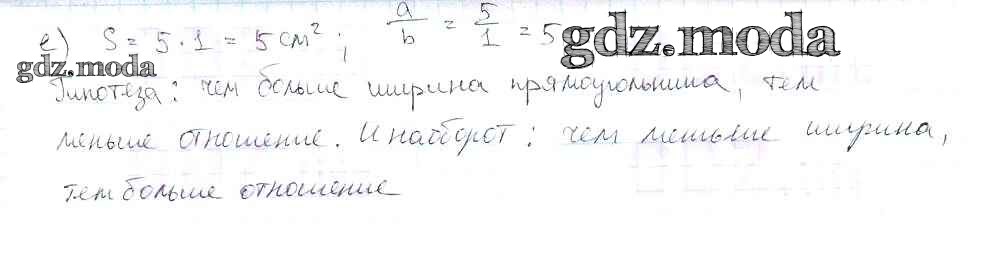 е) S = 5 · 1 = 5 см² ; a/b = 5/1 = 5
gdz.moda
gdz.moda
Гипотеза: чем больше ширина прямоугольника, тем
меньше отношение. И наоборот: чем меньше ширина,
тем больше отношение